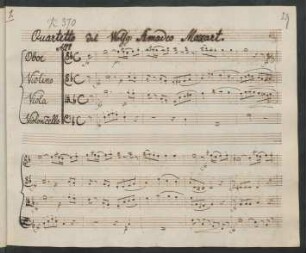 K 370
Quartetto del Wolfg Amadeo Mozart
Oboe
Violino
Viola
Violoncello